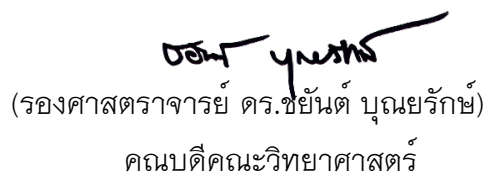 ชยันต์ บุณยรักษ์
(รองศาสตราจารย์ ดร.ชยันต์ บุณยรักษ์)
คณบดีคณะวิทยาศาสตร์